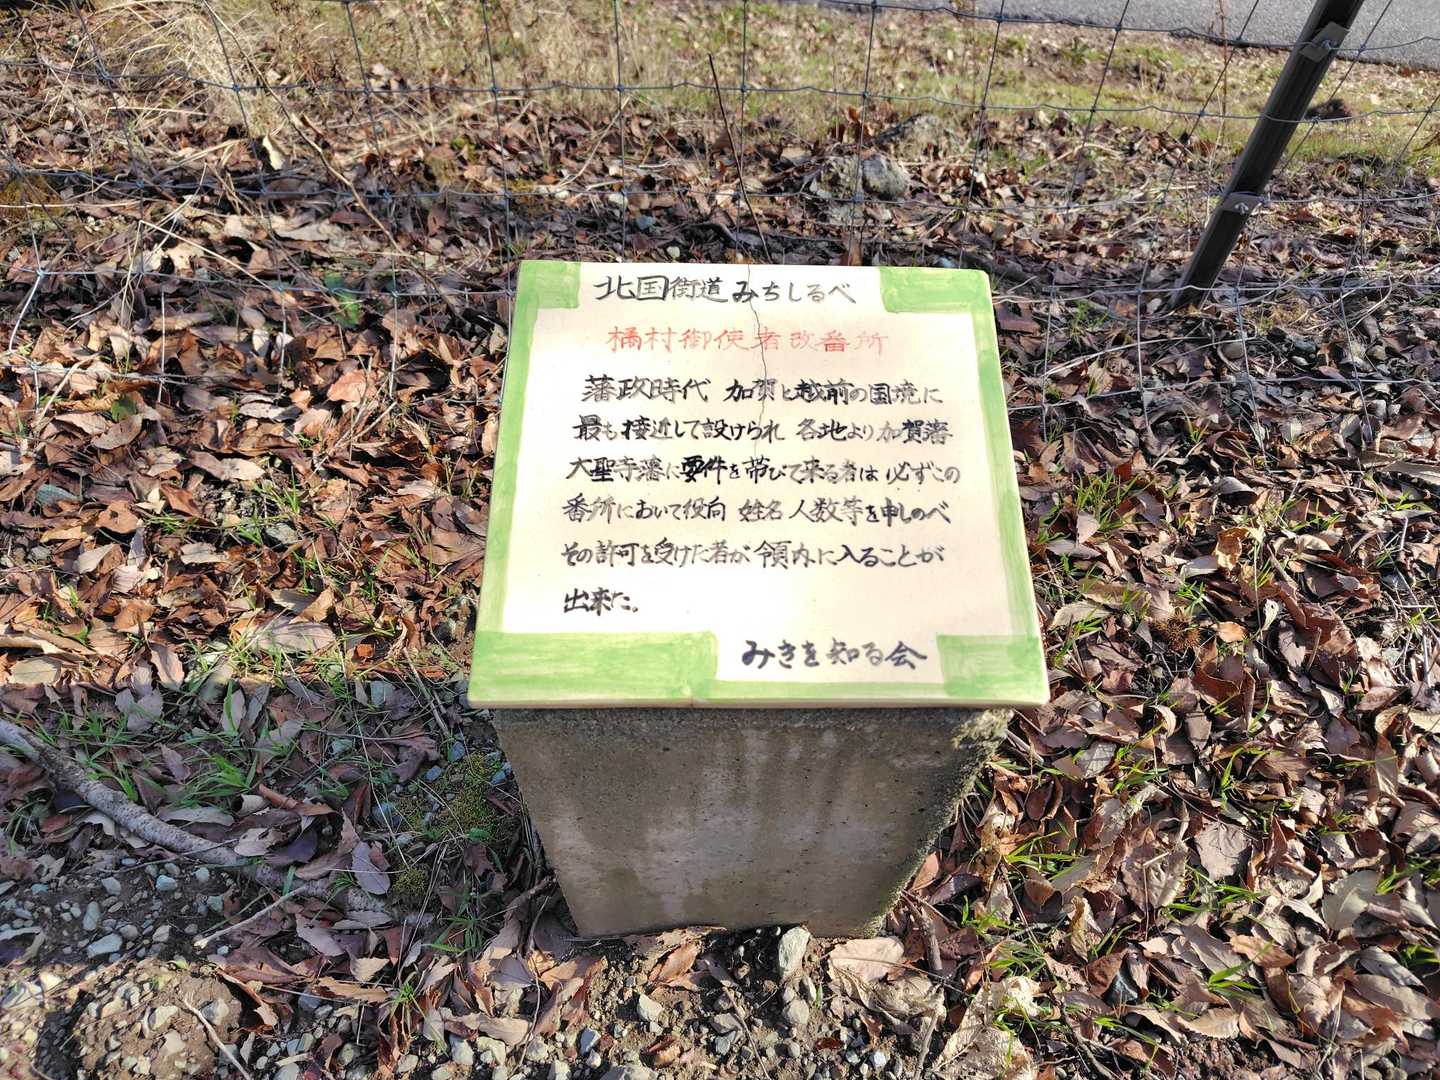 北国街道みちしるべ
橘村御使者改番所
藩政時代 加賀と越前の国境に
最も接近して設けられ 各地より加賀藩
大聖寺藩に要件を帯びて来る者は必ずこの
番所において役向 姓名 人数等を申しのべ
その許可を受けた者が領内に入ることが
出来た。
みきを知る会